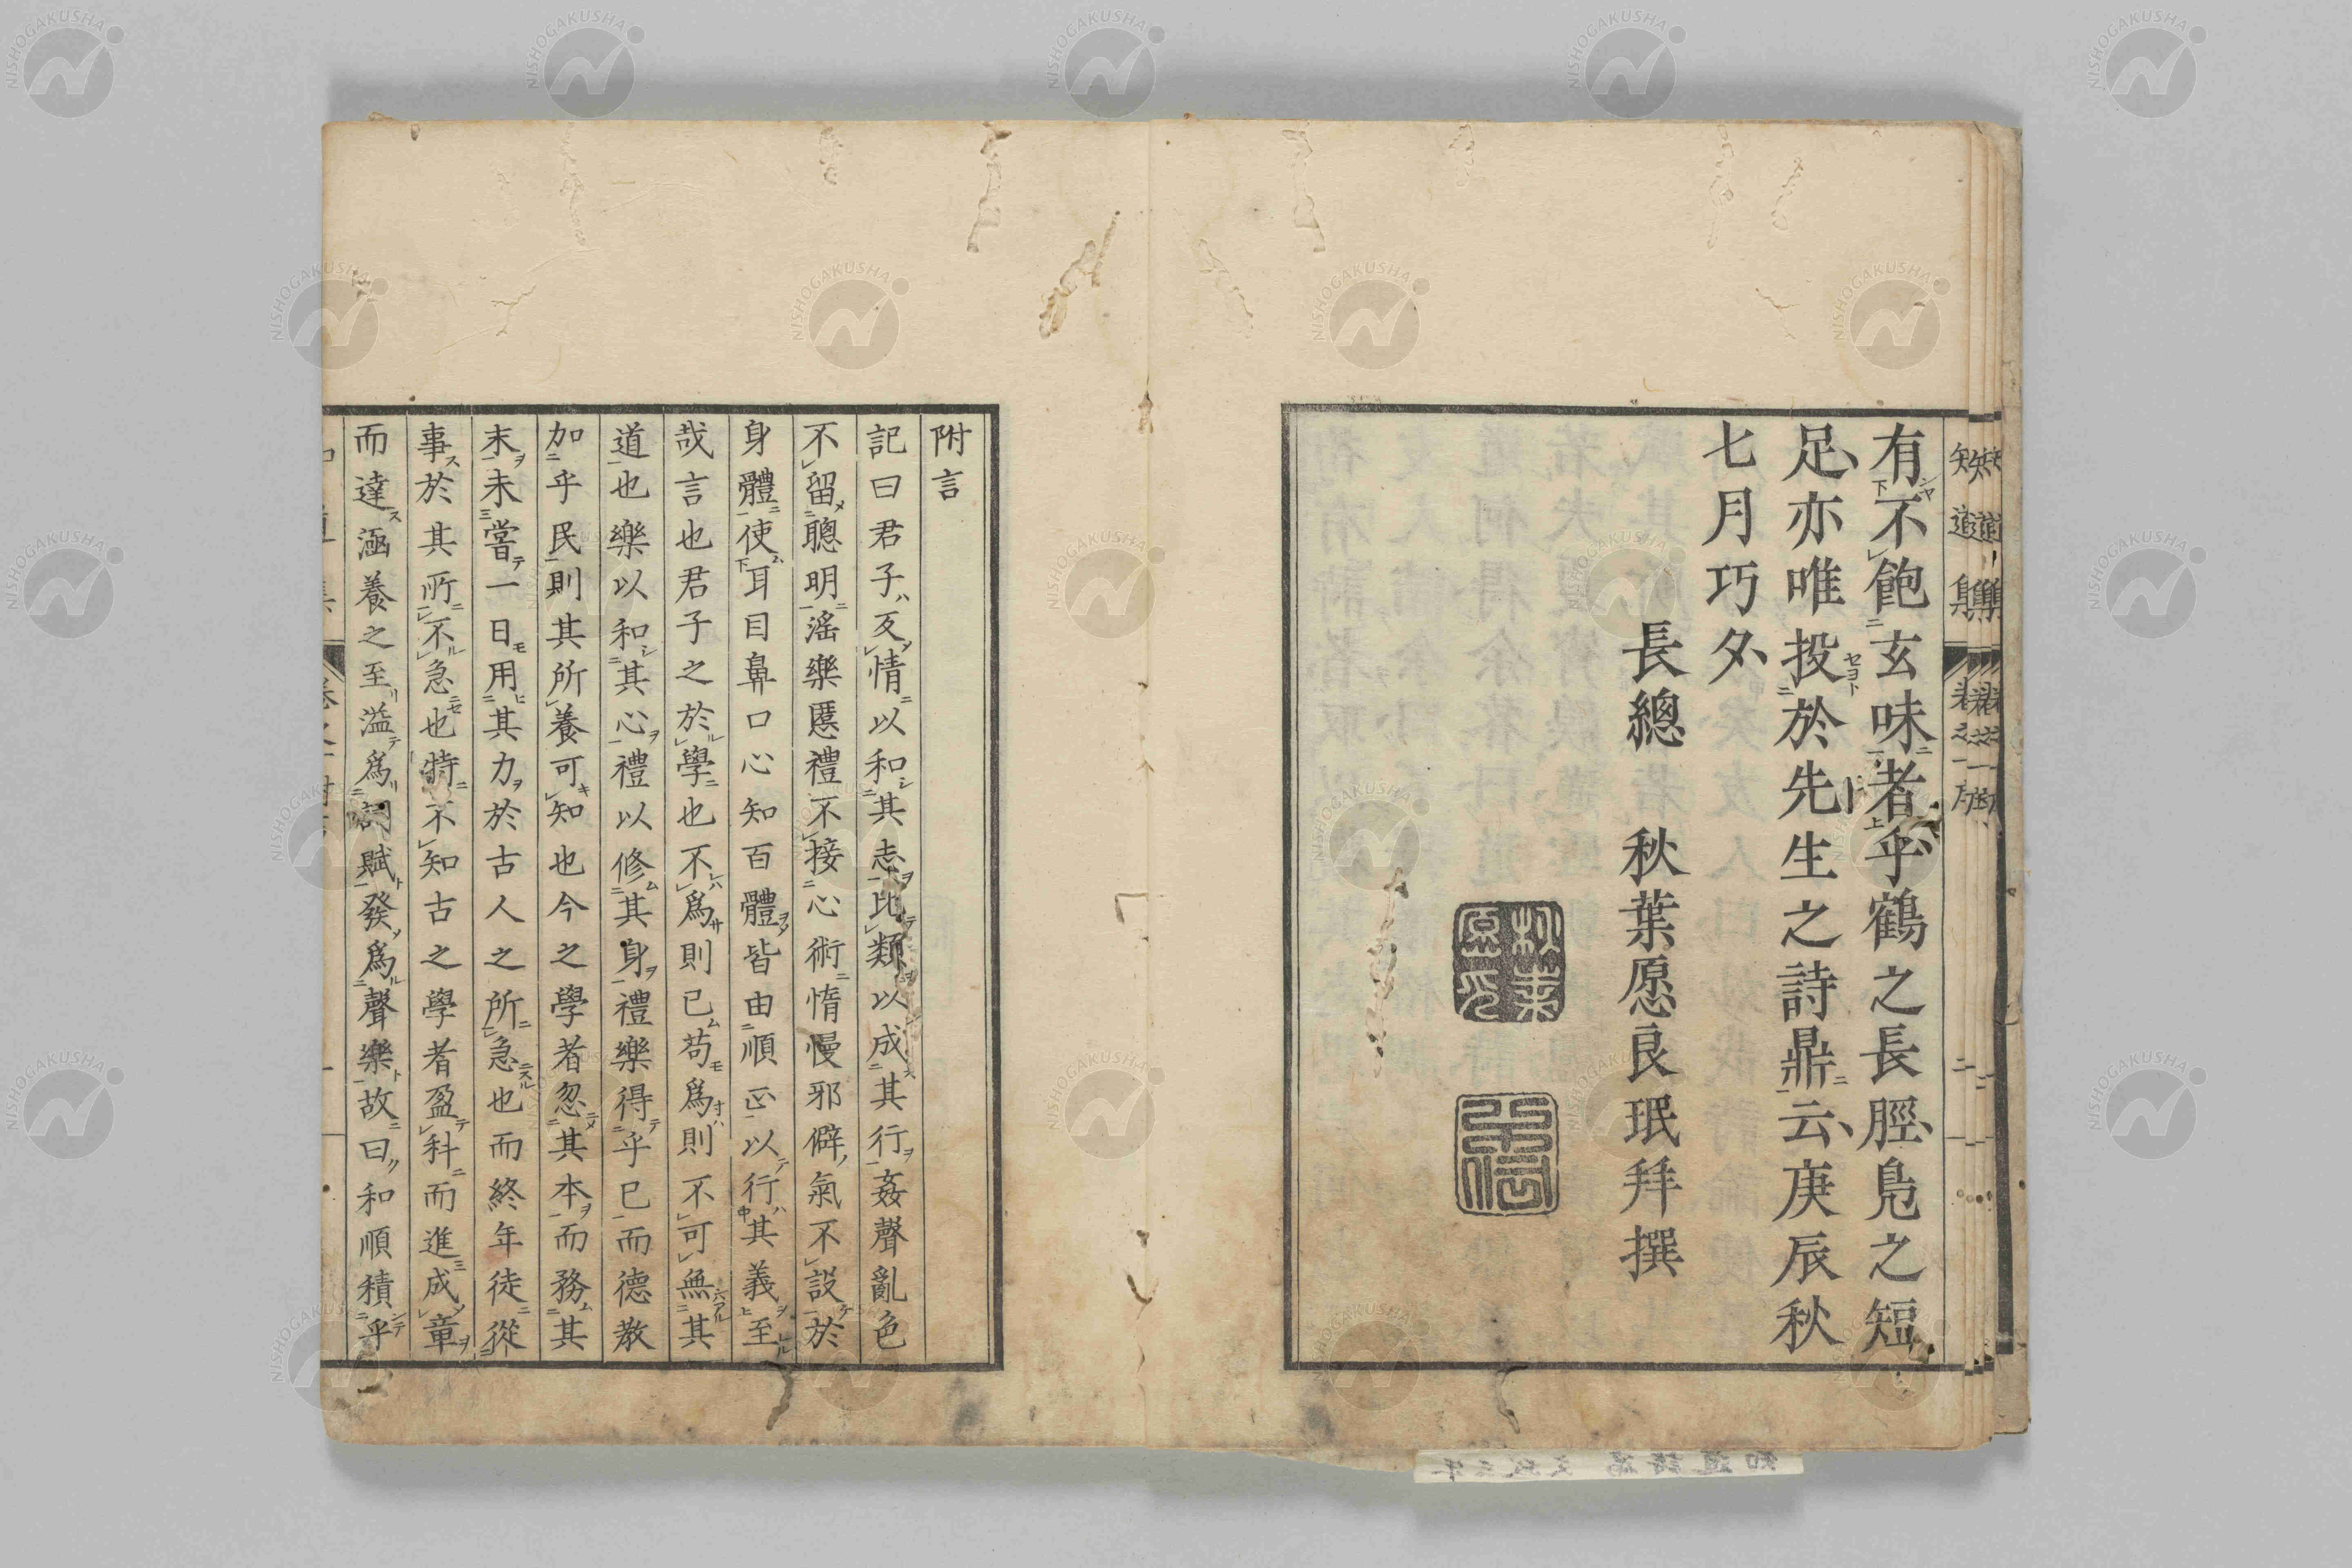 有不飽玄味者乎鶴之長脛鳧之短
足亦唯投於先生之詩鼎云庚辰秋
七月巧夕
長總 秋葉愿良珉拜撰
附言
記曰君子反情以和其志比類以成其行姦聲亂色
不留聰明滛樂慝禮不接心術惰慢邪僻氣不設於
身體使耳目鼻口心知百體皆由順正以行其義至
哉言也君子之於學也不爲則已苟爲則不可無其
道也樂以和其心禮以修其身禮樂得乎已而德教
加乎民則其所養可知也今之學者忽其本而務其
末未嘗一日用其力於古人之所急也而終年徒從
事於其所不急也特不知古之學者盈科而進成章
而達涵養之至溢爲詞賦發爲聲樂故曰和順積乎